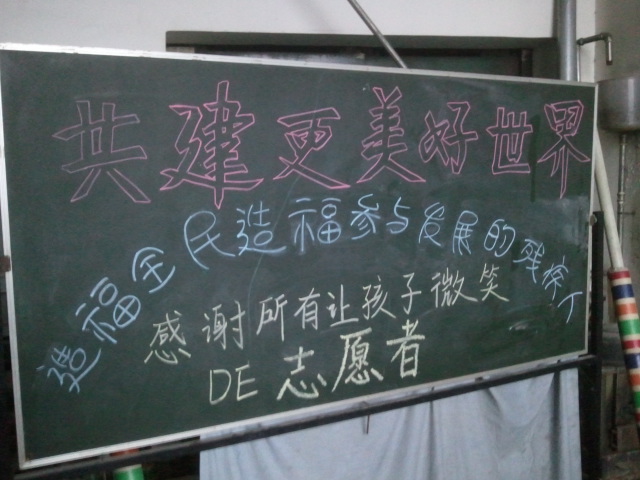 共建更美好世界
造福全民造福参与发展的残
感谢所有让孩子微笑
DE 志愿者